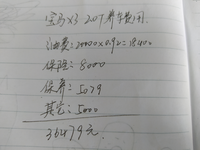 宝马X3 2017养车费用.
油费:20000×0.92=18400
保险:8000
保养:5079
其它:5000
36479元.